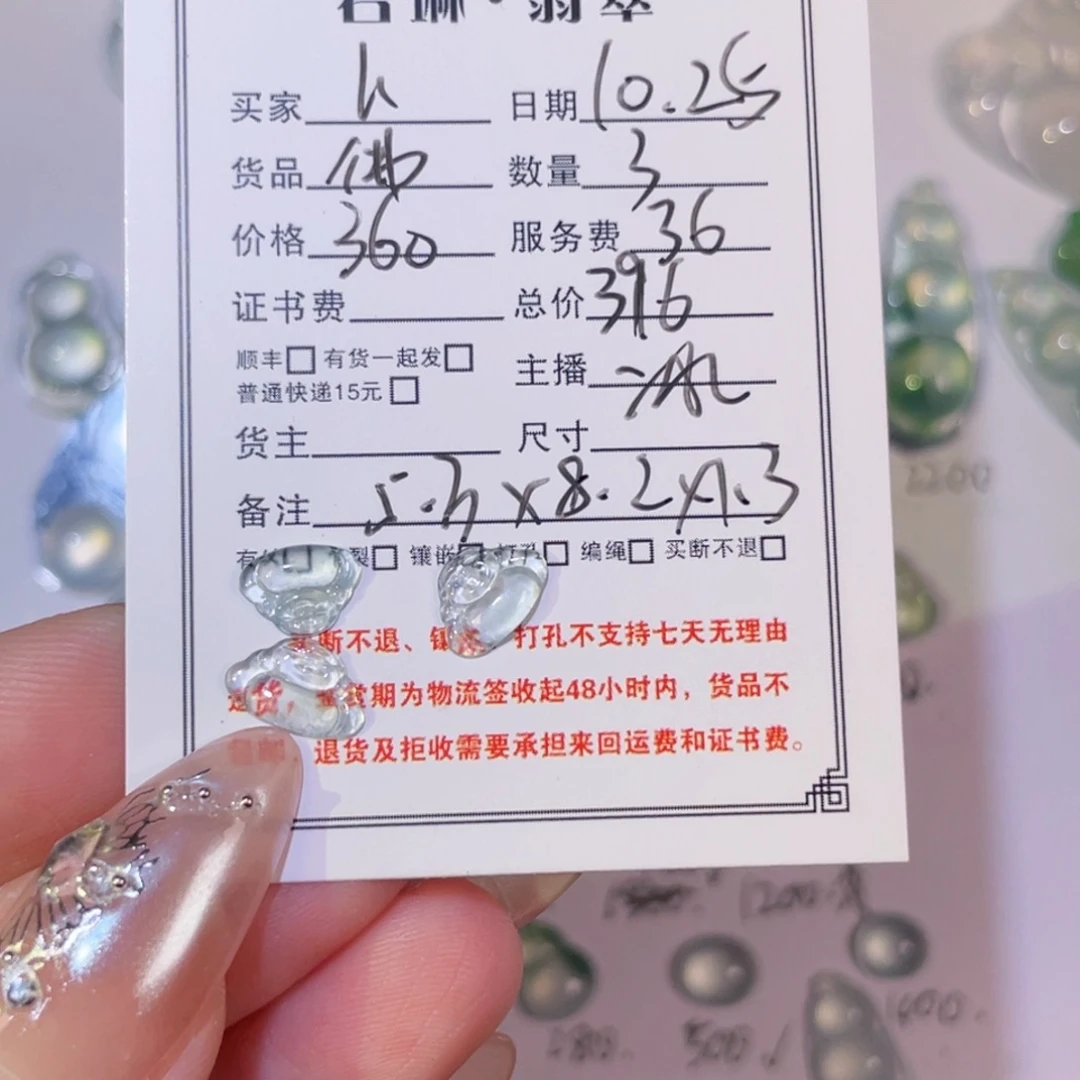 翡翠
买家 h 日期 10.25
货品 佛 数量 3
价格 360 服务费 36
证书费 总价 396
顺丰 有货一起发
普通快递15元
主播
货主 尺寸
备注 5.3×8.2×1.3
镶嵌 打孔 编绳 买断不退
断不退、镶 打孔不支持七天无理由
退货, 货期为物流签收起48小时内,货品不
退货及拒收需要承担来回运费和证书费。
2200
1200
500